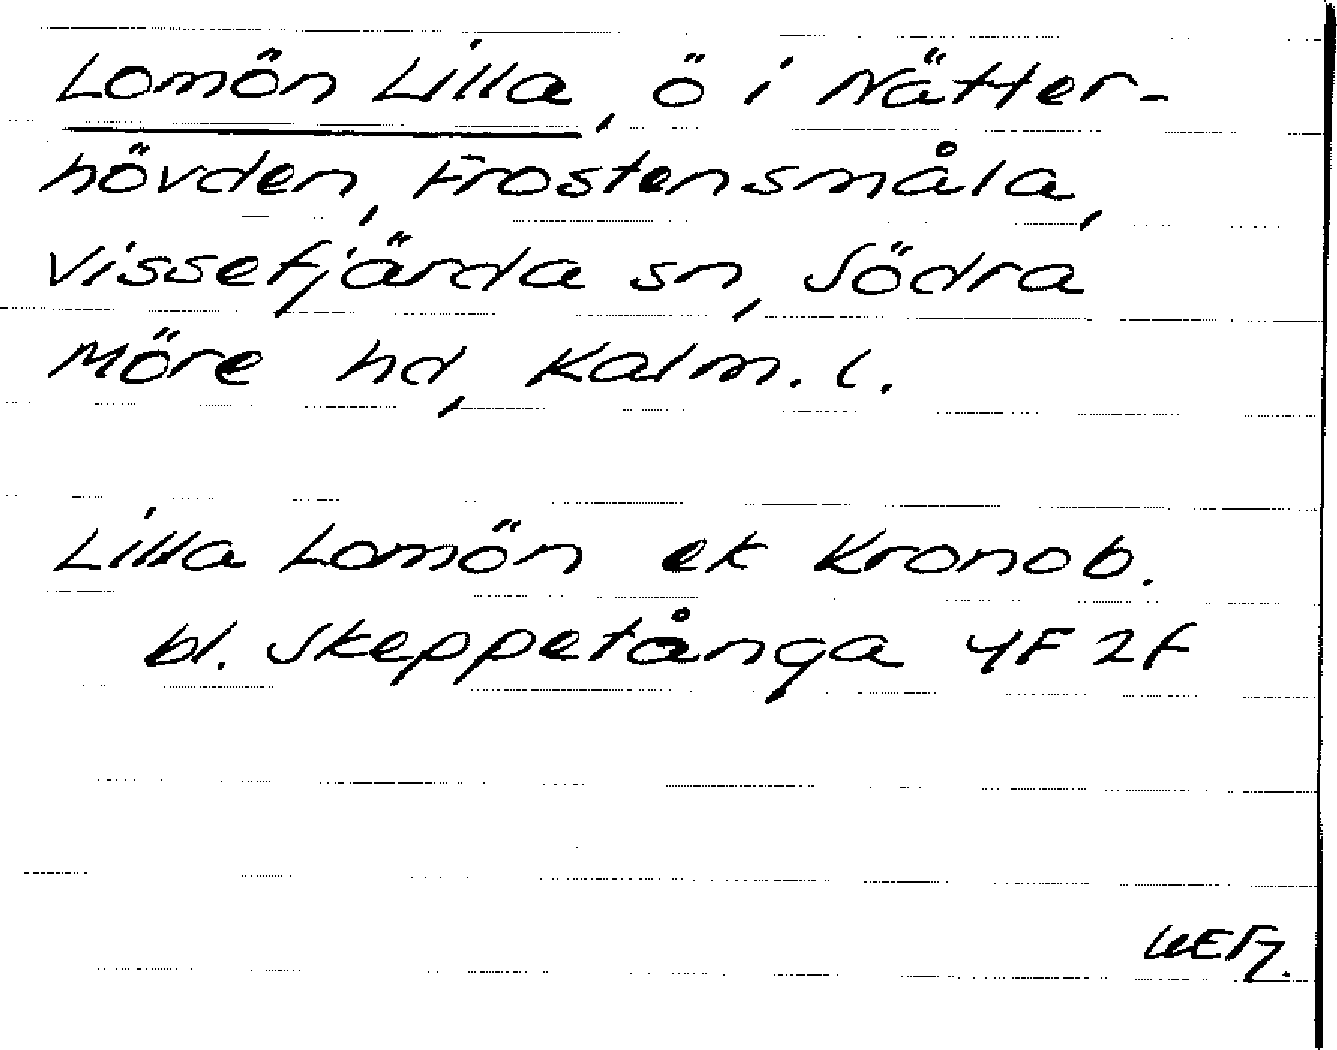 Lomön Lilla, ö i Nätter-
hövden, Frostensmåla,
Vissefjärda sn, Södra
Möre hd, Kalm. l.
Lilla Lomön ek Kronob.
bl. Skeppetånga 4F 2f